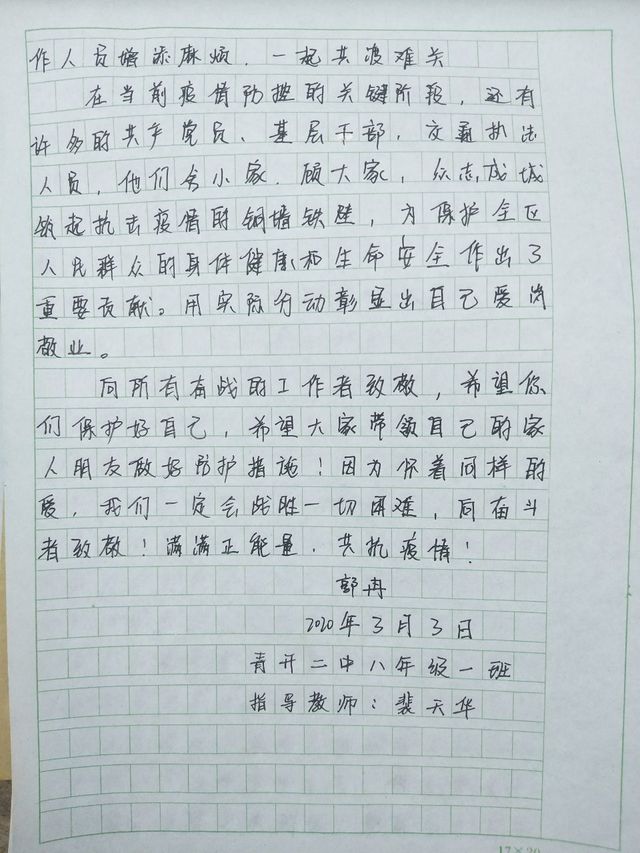 作人员增添麻烦，一起共渡难关
在当前疫情防控的关键阶段，还有
许多的共产党员、基层干部，交通执法
人员，他们舍小家，顾大家，众志成城
筑起抗击疫情的铜墙铁壁，为保护全区
人民群众的身体健康和生命安全作出了
重要贡献。用实际行动彰显出自己爱岗
敬业。
向所有奋战的工作者致敬，希望你
们保护好自己，希望大家带领自己的家
人朋友做好防护措施！因为怀着同样的
爱，我们一定会战胜一切困难，向奋斗
者致敬！满满正能量，共抗疫情！
郭冉
2020年3月3日
青开二中八年级一班
指导教师：裴天华
17×20